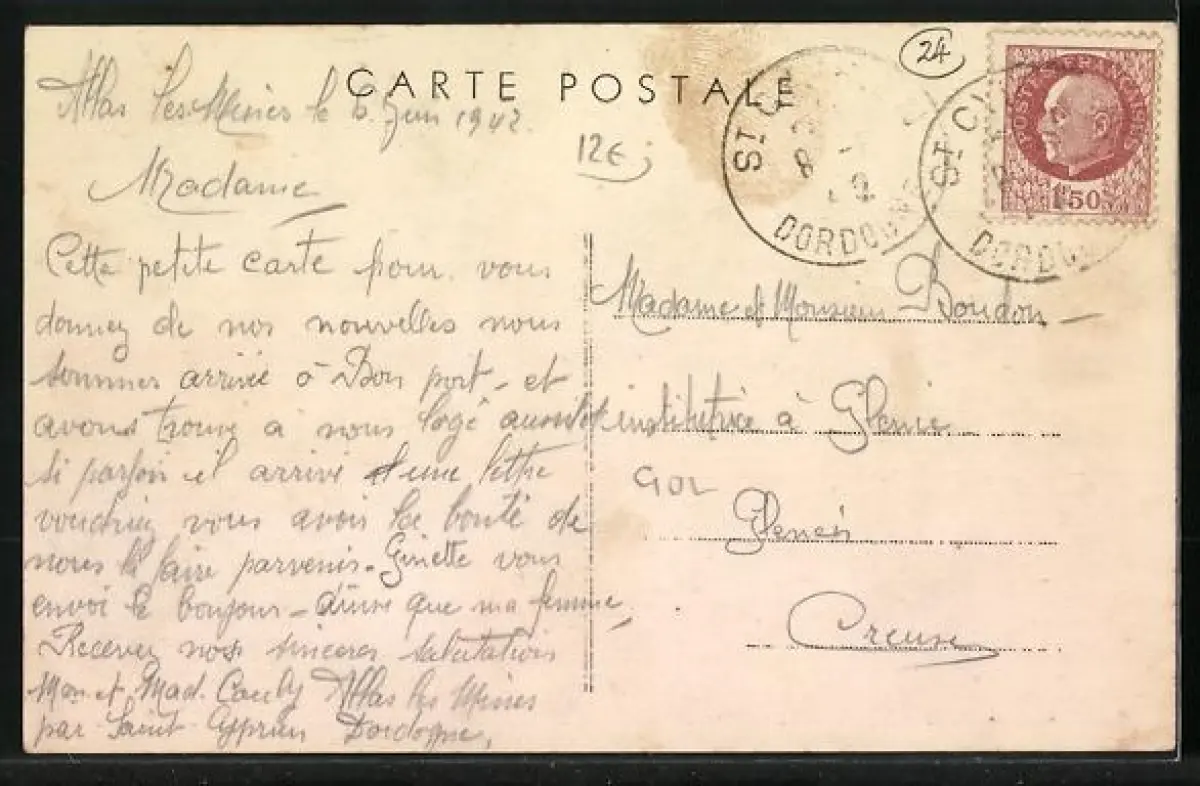 CARTE POSTALE
Allas les Mines le 6 Juin 1942
24
12€
Madame
POSTES FRANÇAISES
1F50
ST CY
8
DORDOGN
ST CY
DORDOGN
Cette petite carte pour vous
donnez de nos nouvelles nous
sommes arrivée à Bon port - et
avons trouve a nous logé aussitot
si parfois il arrive d'une lettre
voudriez vous avoir la bonté de
nous la faire parvenir - Ginette vous
envoi le bonjour - ainsi que ma femme
Recevez nos sinceres salutations
Mon et Mad. Cauly Allas les Mines
par Saint Cyprien Dordogne,
Madame et Monsieur Boudon
institutrice à Glenic
Glenic
Creuse